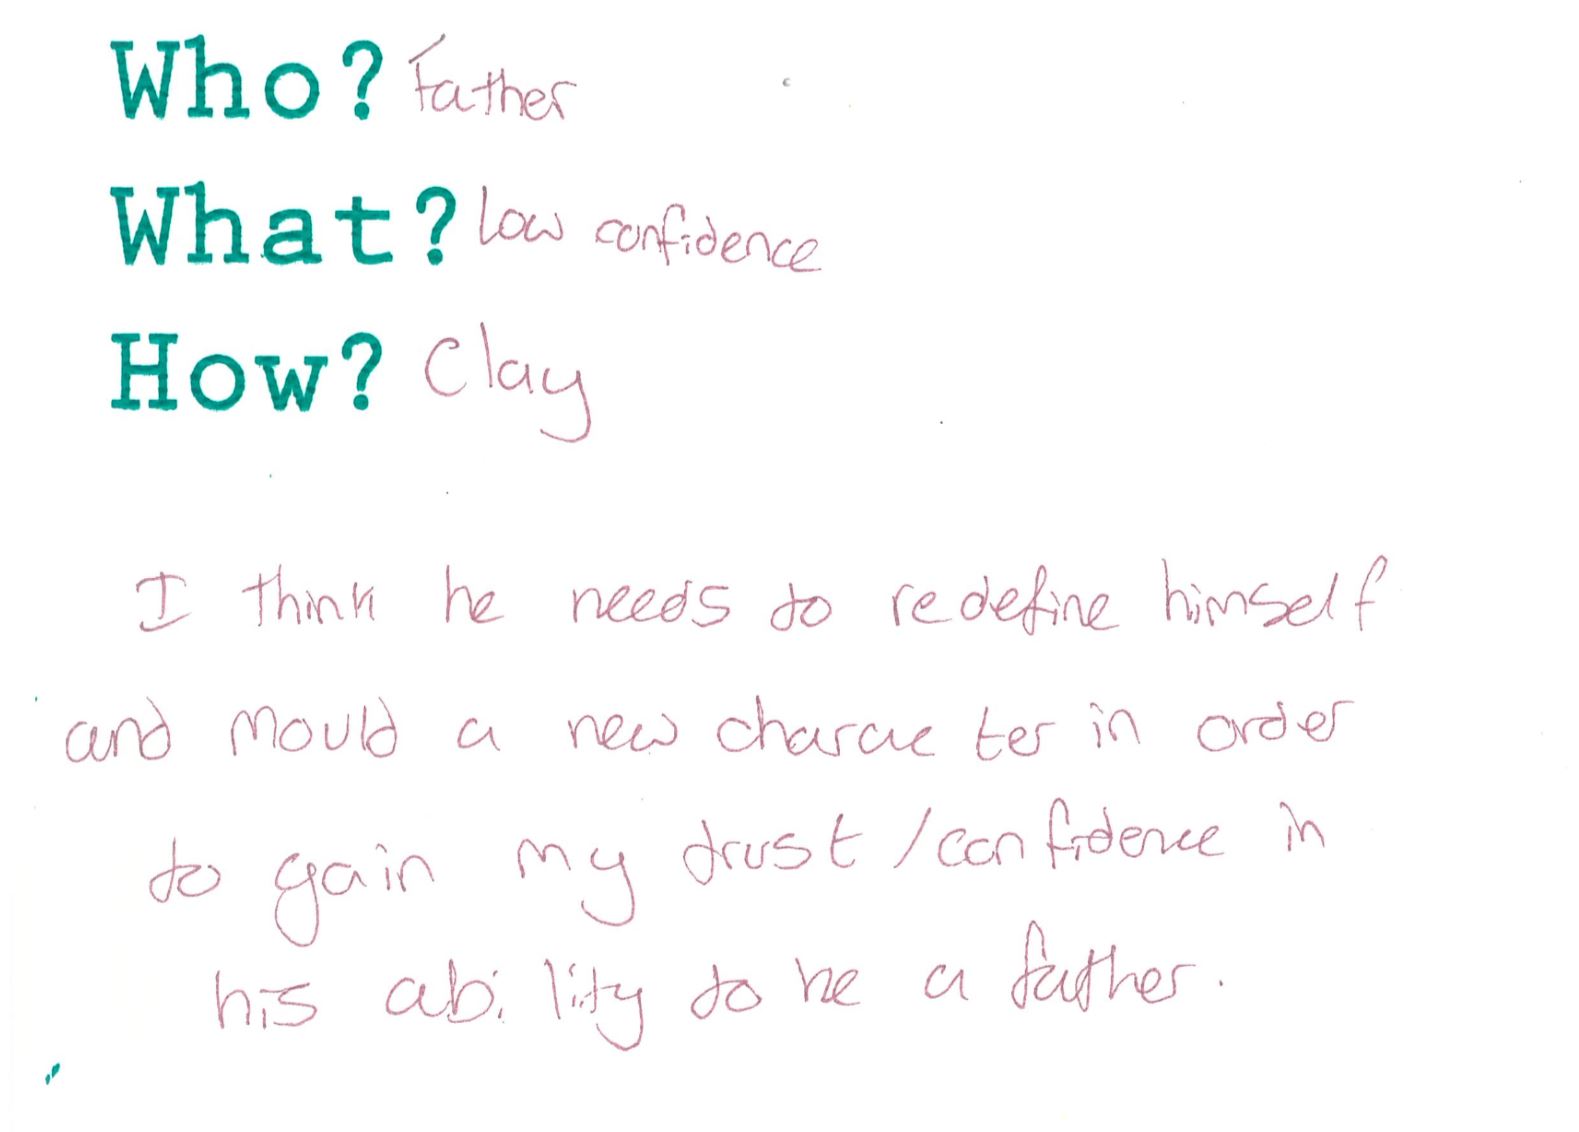 Who? Father
What? Low confidence
How? Clay
I think he needs to redefine himself
and mould a new character in order
to gain my trust/confidence in
his ability to be a father.